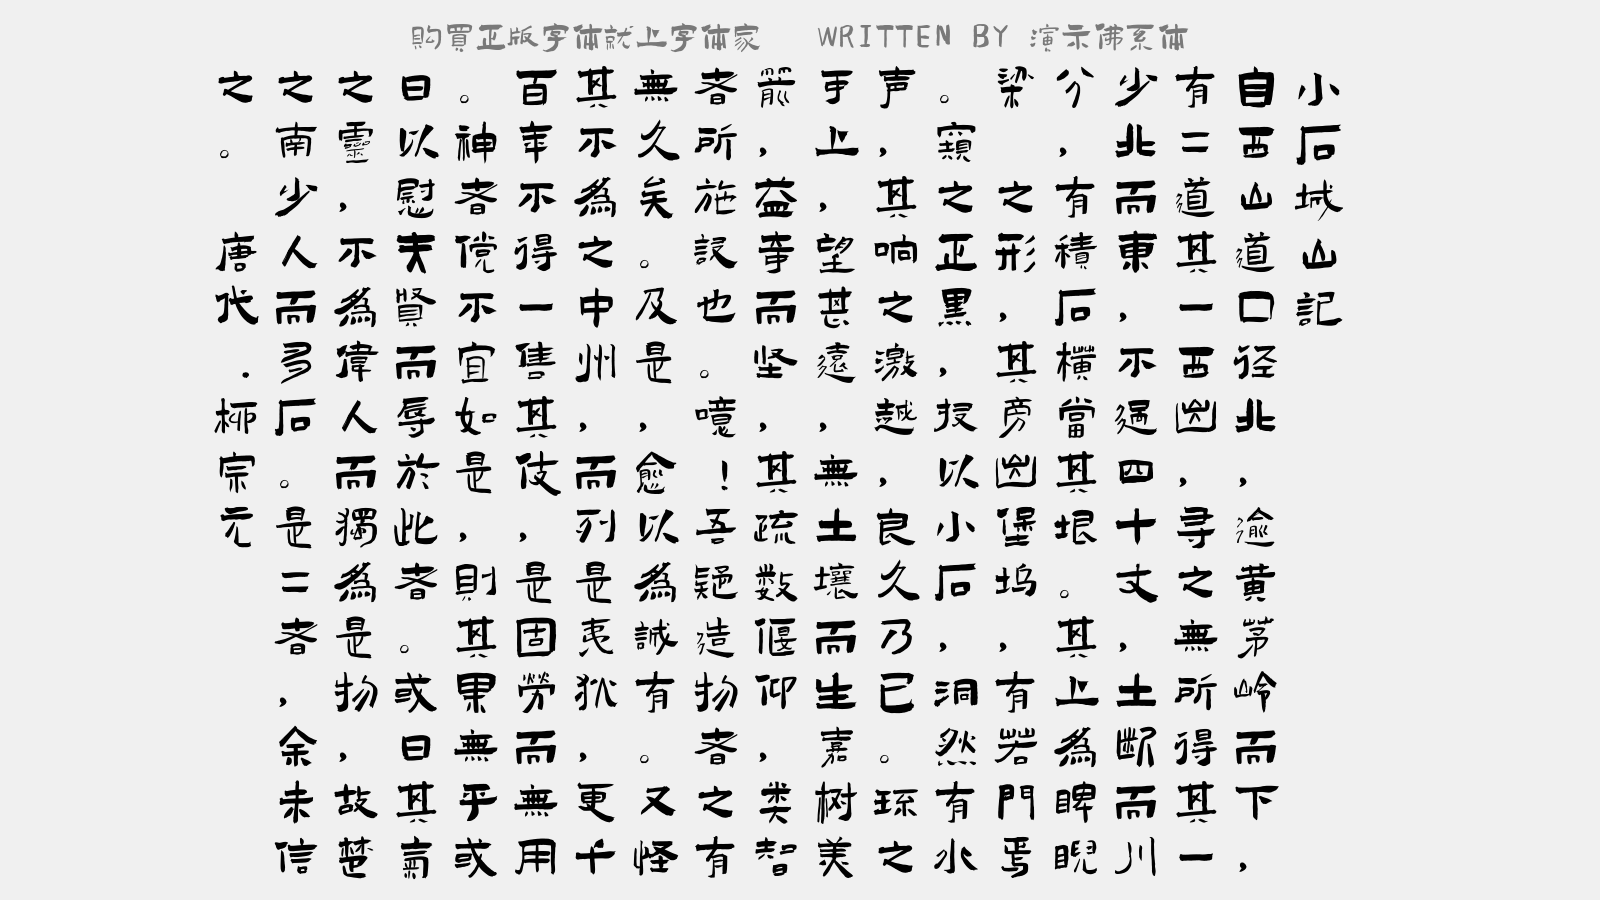 购買正版字体就上字体家 WRITTEN BY 演示佛系体
小石城山記
自西山道口径北，逾黄茅岭而下，
有二道其一西出，寻之無所得其一
少北而東，不過四十丈，土断而川
分，有積石横當其垠。其上為睥睨
梁之形，其旁出堡坞，有若門焉
。窺之正黒，投以小石，洞然有水
声，其响之激越，良久乃已。环之
可上，望甚遠，無土壤而生嘉树美
箭，益奇而坚，其疏数偃仰，类智
者所施設也。噫！吾疑造物者之有
無久矣。及是，愈以為誠有。又怪
其不為之中州，而列是夷狄，更千
百年不得一售其伎，是固勞而無用
。神者傥不宜如是，則其果無乎或
曰以慰夫賢而辱於此者。或曰其氣
之靈，不為偉人而獨為是物，故楚
之南少人而多石。是二者，余未信
之。 唐代.柳宗元